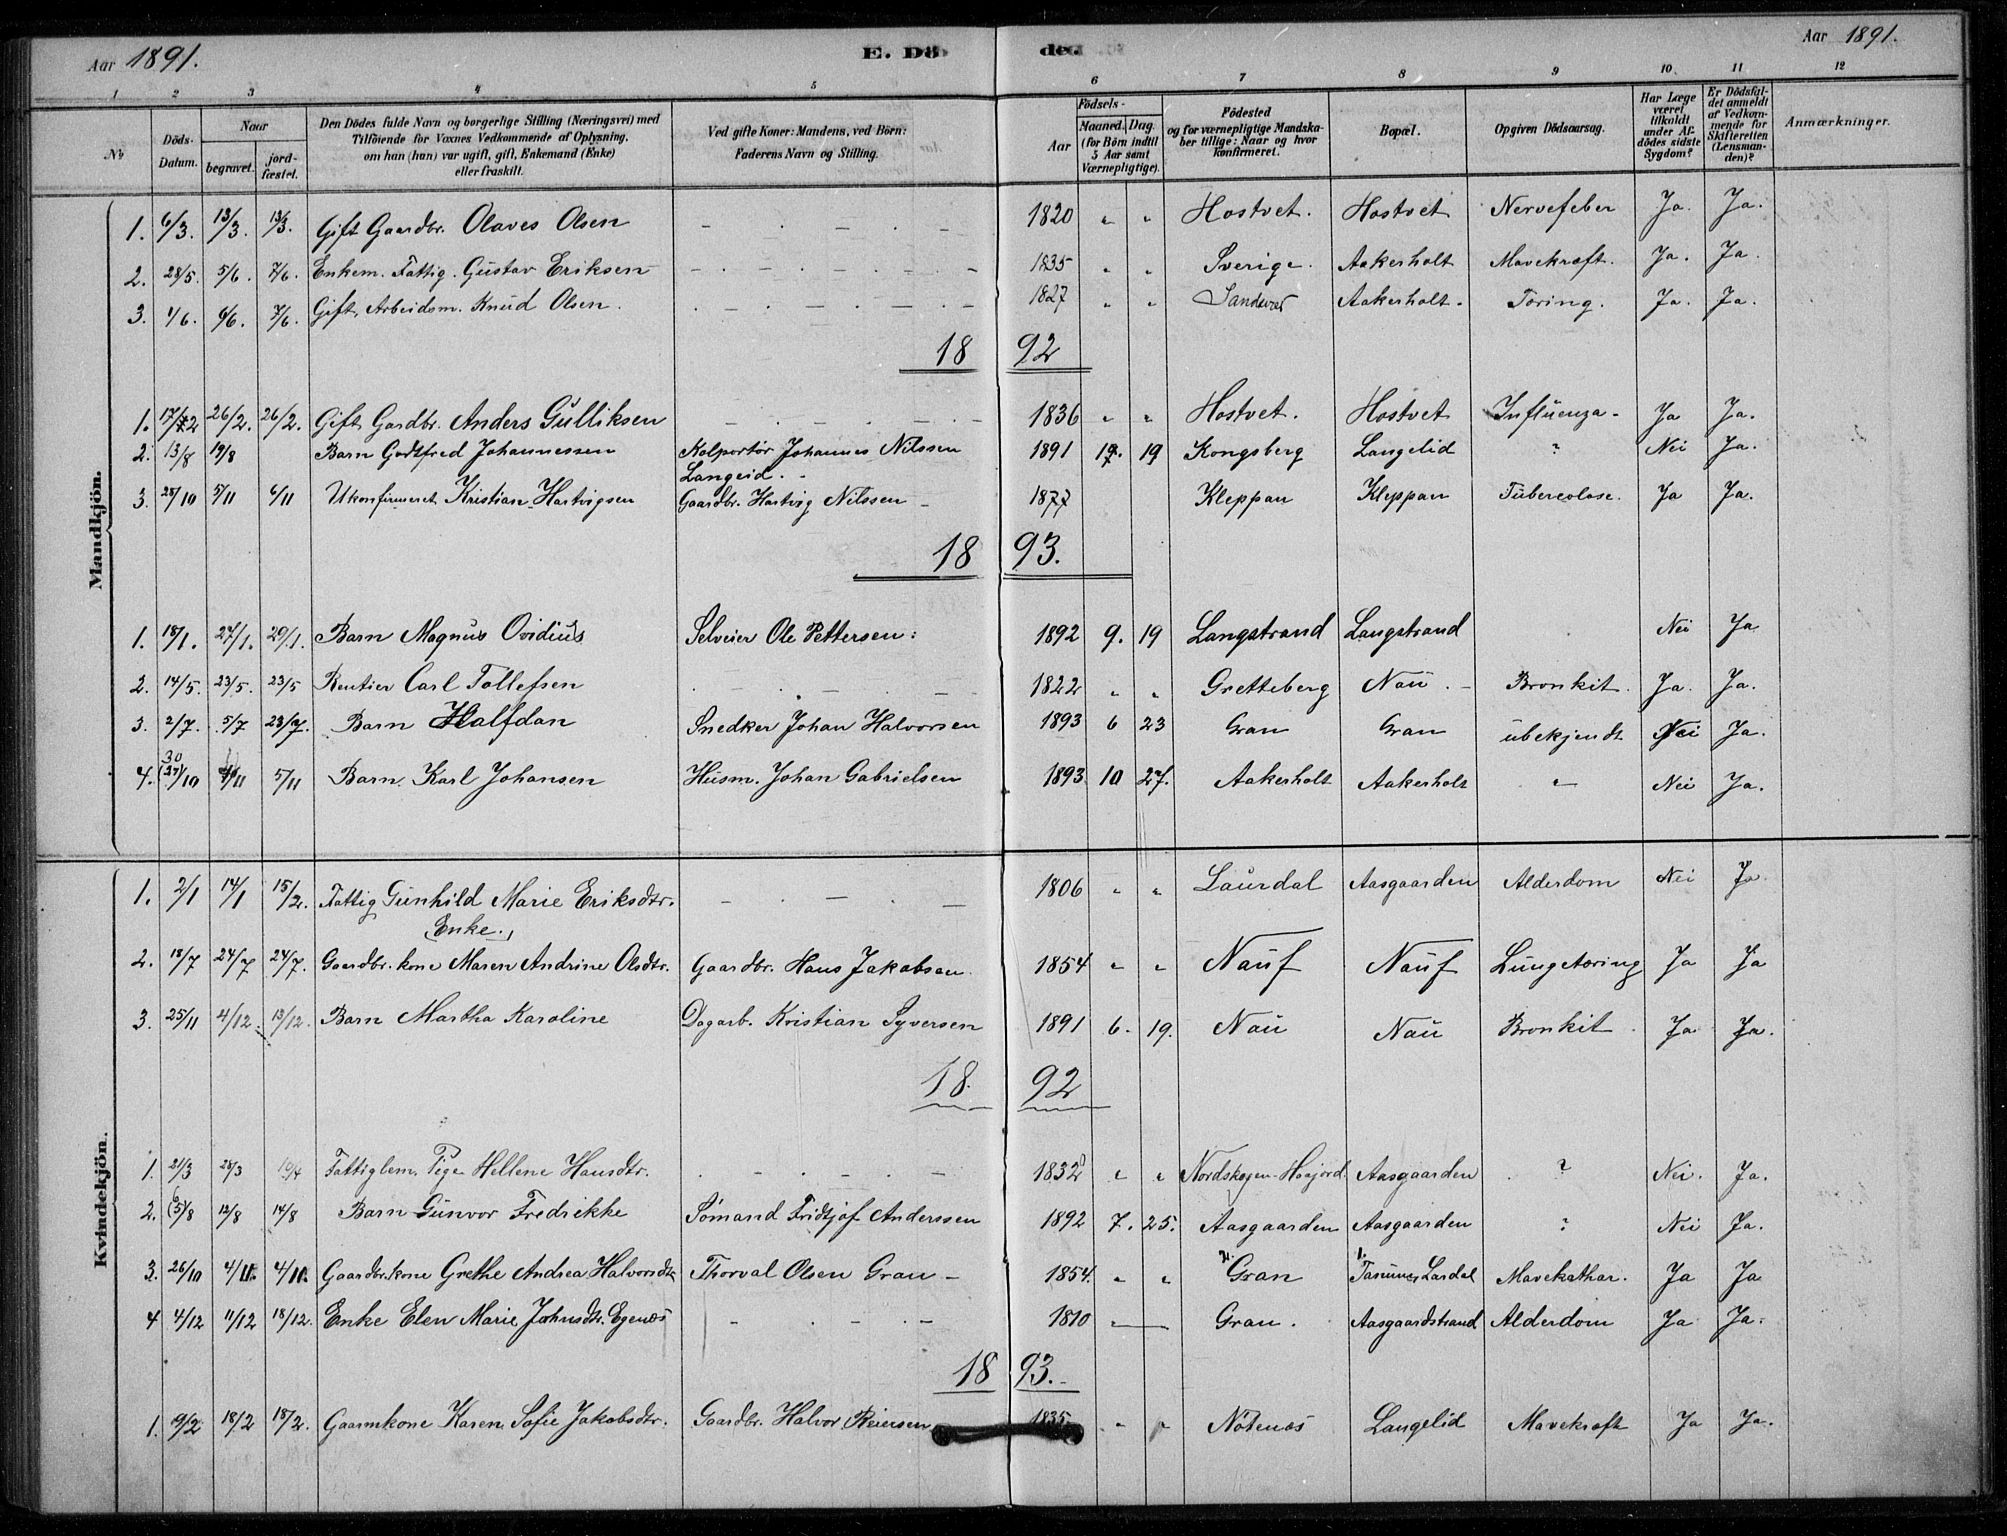 Aar 1891. E. Dö de. Aar 1891.
1 2 3 4 5 6 7 8 9 10 11 12
No Döds-Datum. Naar begravet. jord-fæstet. Den Dödes fulde Navn og borgerlige Stilling (Næringsvei) med Tilföiende for Voxnes Vedkommende af Oplysning, om han (hun) var ugift, gift, Enkemand (Enke) eller fraskilt. Ved gifte Koner: Mandens, ved Börn: Faderens Navn og Stilling. Födsels- Aar Maaned. Dag. (for Börn indtil 5 Aar samt Værnepligtige). Födested og for værnepligtige Mandska-ber tillige: Naar og hvor konfirmeret. Bopæl. Opgiven Dödsaarsag. Har Læge været tilkaldt under Af-dödes sidste Sygdom? Er Dödsfal-det anmeldt af Vedkom-mende for Skifteretten (Lensman-den)? Anmærkninger.
Mandkjön.
1. 6/3. 13/3. 13/3. Gift Gaardbr. Olaves Olsen 1820 " " Hostvet. Hostvet Nervefeber Ja. Ja.
2. 28/5. 5/6. 7/6. Enkem. Fattig. Gustav Eriksen 1835 " " Sverige. Aakerholt Mavekræft. Ja. Ja.
3. 1/6. 6/6. 7/6. Gift, Arbeidsm. Knud Olsen. 1827 " " Aakerholt. Tæring. Ja. Ja.
18 92
1. 17/2 26/2. 26/2. Gift Gardbr. Anders Gulliksen 1836 " " Hostvet. Hostvet Influenza. Ja Ja.
2. 13/8 19/8 Barn Godtfred Johannessen Kolportør Johannes Nilssen 1891 19 Kongsberg Langelid ? Nei Ja.
Langeid.
3. 28/10 5/11 6/11 Ukonfirmeret Kristian Hartvigsen Gaardbr. Hartvig Nilssen 1877 Kleppan Kleppan Tuberculose. Ja Ja.
18 93.
1. 18/1. 27/1. 29/1. Barn Magnus Ovidius Selveier Ole Pettersen: 1892 9. 19 Langstrand Langstrand Nei Ja
2. 14/5. 23/5. 23/5 Rentier Carl Tollefsen 1822 " " Gretteberg Nau. Bronkit. Ja. Ja.
3. 2/7. 5/7 23/7. Barn Halfdan Snedker Johan Halvorsen 1893 6 23 Gran Gran ubekjendt Nei Ja.
30
4. (27)/10 4/11 5/11 Barn Karl Johansen Husm. Johan Gabrielsen 1893 10 27. Aakerholt Aakerholt " Nei Ja.
Kvindekjön.
1. 2/1 14/1 15/2. Fattig Gunhild Marie Eriksdtr. 1806 " " Laurdal Aasgaarden Alderdom Nei Ja.
(Enke.)
2. 18/7 24/7 24/7. Gaardbr. kone Maren Andrine Olsdtr. Gaardbr. Hans Jakobsen 1854 " " Nauf Nauf Lungetæring Ja Ja
3. 25/11 4/12. 13/12. Barn Martha Karoline Dagarb. Kristian Syversen 1891 6. 19. Nau Nau Bronkit Ja Ja.
18. 92
1. 21/3 28/3 10/4 Fattiglem. Pige Hellene Hansdtr. 1832 " " Nordskogen Hvajord Aasgaarden ? Nei. Ja.
2. (5)/8 12/8 14/8 Barn Gunvor Fredrikke Sømand Fridtjof Anderssen 1892 7. 25. Aasgaarden Aasgaarden ? Nei Ja.
3. 26/10 4/11. 4/11. Gaardbr. kone Grethe Andrea Halvorsdtr Thorval Olsen Gran 1854. " " 2. Gran 1. Lardal Mavekathar. Ja Ja
4 4/12 11/12 18/12. Enke Elen Marie Johnsdtr. Egenæs 1810 Gran. Aasgaardstrand Alderdom Ja Ja.
18 93.
1. 9/2 18/2 18/2. Gaarmkone Karen Sofie Jakobsdtr. Gaardbr. Halvor Reiersen 1835. " " Nötenæs Langelid Mavekræft Ja Ja.